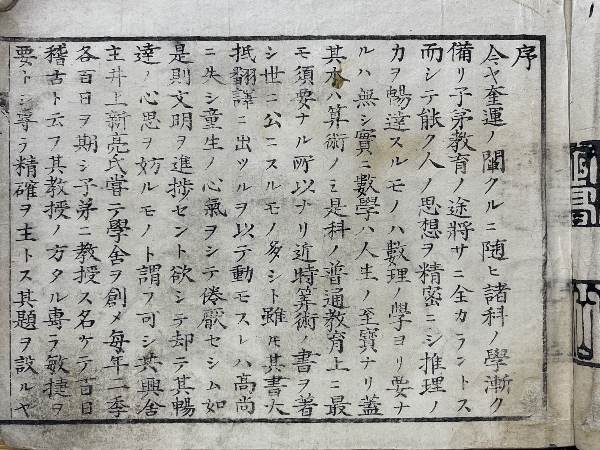 序
今ヤ奎運ノ闡クルニ随ヒ諸科ノ學漸ク
備リ子弟教育ノ途將サニ全カラントス
而シテ能ク人ノ思想ヲ精密ニシ推理ノ
力ヲ暢達スルモノハ數理ノ學ヨリ要ナ
ルハ無シ實ニ數學ハ人生ノ至寶ナリ蓋
其本ハ算術ノミ是科ノ普通教育上ニ最
モ須要ナル所以ナリ近時算術ノ書ヲ著
シ世ニ公ニスルモノ多シト雖𪜈其書大
抵翻譯ニ出ツルヲ以テ動モスレハ高尚
ニ失シ童生ノ心氣ヲシテ倦厭セシム如
是則文明ヲ進捗セント欲シテ却テ其暢
達ノ心思ヲ妨ルモノト謂フ可シ其興舎
主井上新亮氏嘗テ學舎ヲ創メ毎年二季
各百日ヲ期シ子弟ニ教授ス名ケテ百日
稽古ト云フ其教授ノ方タル專ラ敏捷ヲ
要トシ専ラ精確ヲ主トス其題ヲ設ルヤ